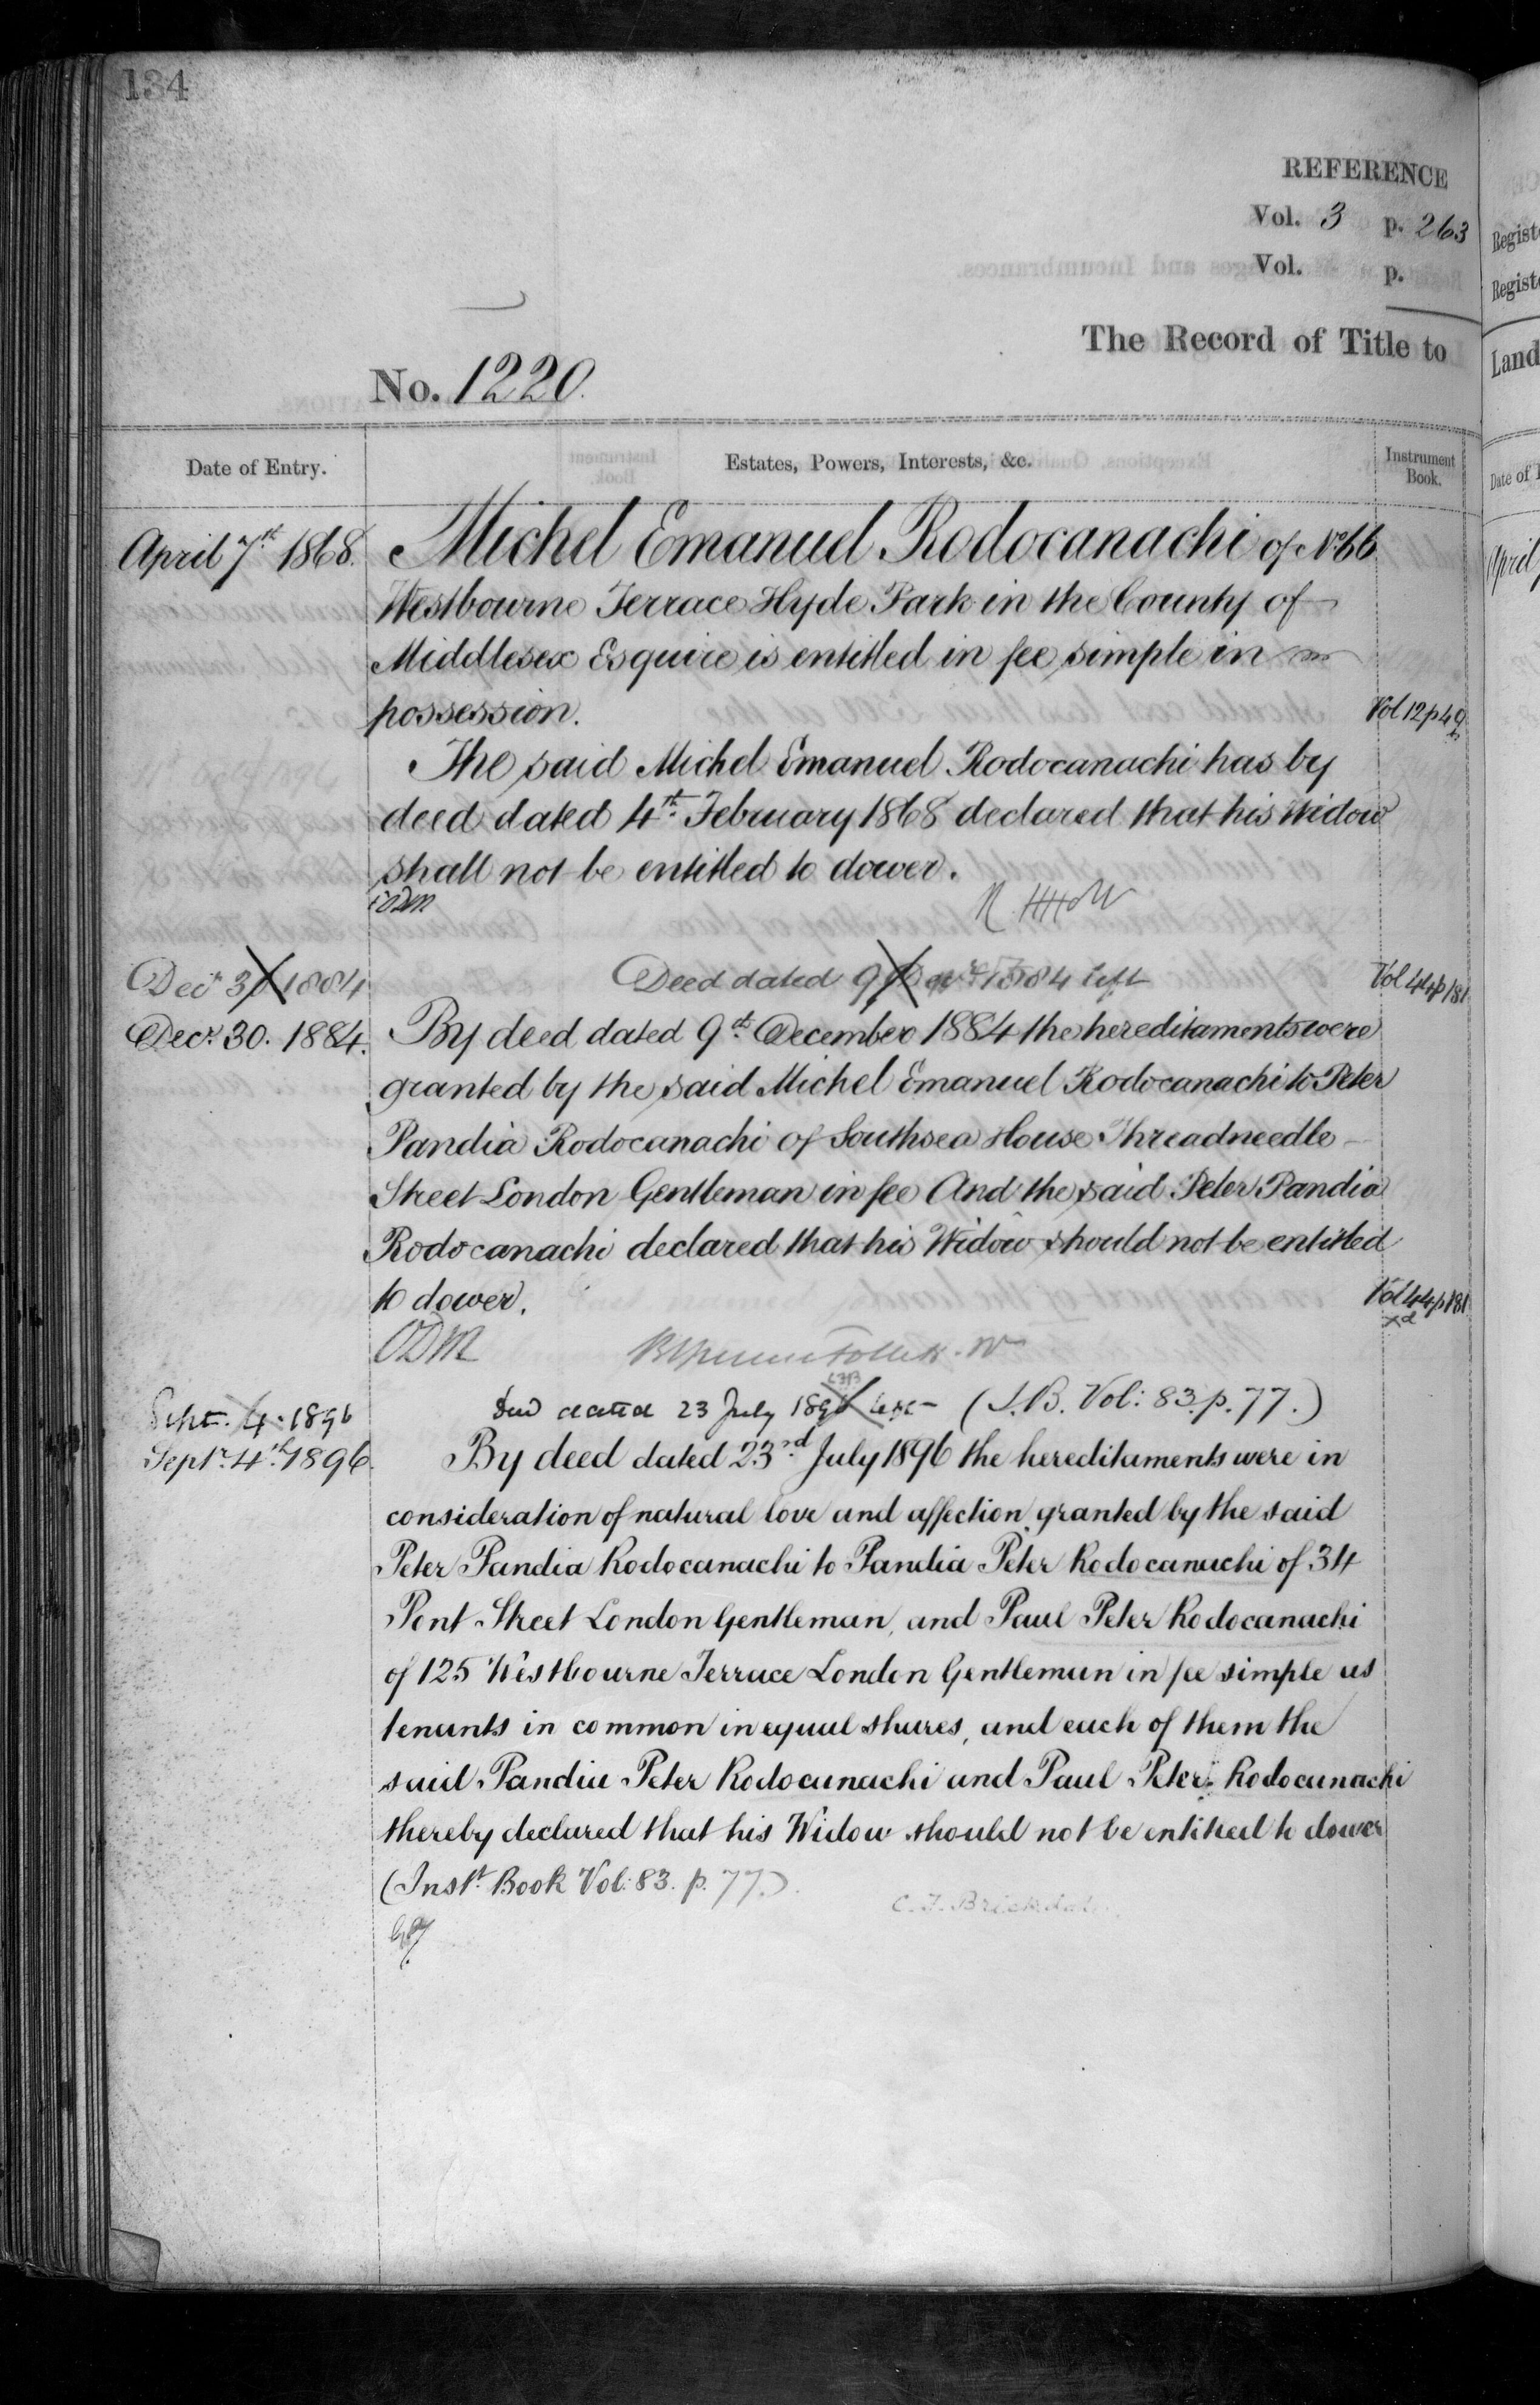 134
REFERENCE
Vol. 3 p. 263
Vol. p.
The Record of Title to
No. 1220.
Date of Entry. Estates, Powers, Interests, &c. Instrument Book.
April 7th 1868. Michel Emanuel Rodocanachi of No 66
Westbourne Terrace Hyde Park in the County of
Middlesex Esquire is entitled in fee simple in
possession. Vol 12 p 49
The said Michel Emanuel Rodocanachi has by
deed dated 4th February 1868 declared that his Widow
shall not be entitled to dower.
Decr 30 1884 Deed dated 9 Decr 1884 left Vol 44 p 181
Decr 30. 1884. By deed dated 9th December 1884 the hereditaments were
granted by the said Michel Emanuel Rodocanachi to Peter
Pandia Rodocanachi of Southsea House Threadneedle
Street London Gentleman in fee And the said Peter Pandia
Rodocanachi declared that his Widow should not be entitled
to dower. Vol 44 p 181
xd
ODM
Sept. 4. 1896 Deed dated 23 July 1896 left (I.B. Vol: 83. p. 77.)
Septr 4th 1896. By deed dated 23rd July 1896 the hereditaments were in
consideration of natural love and affection granted by the said
Peter Pandia Rodocanachi to Pandia Peter Rodocanachi of 34
Pont Street London Gentleman, and Paul Peter Rodocanachi
of 125 Westbourne Terrace London Gentleman in fee simple as
tenants in common in equal shares, and each of them the
said Pandia Peter Rodocanachi and Paul Peter Rodocanachi
thereby declared that his Widow should not be entitled to dower
(Inst. Book Vol: 83. p. 77.)
C. F. Brickdale
Regist
Regist
Land
Date of
April